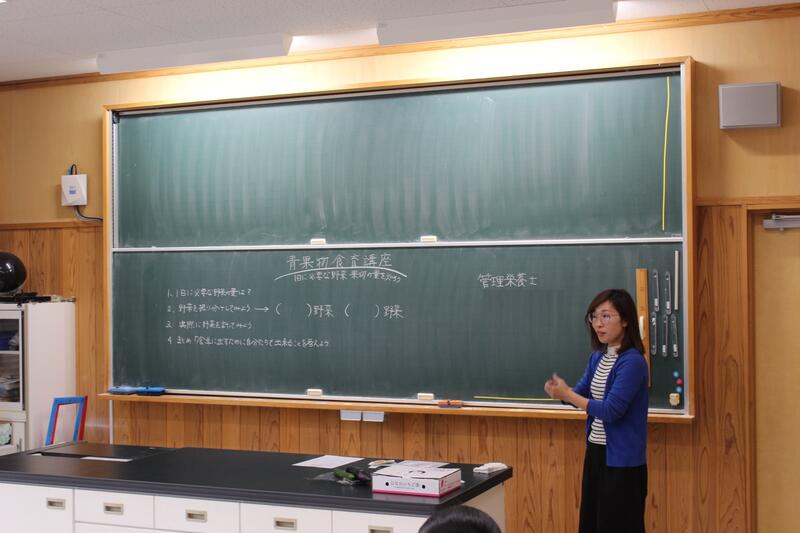 青果物食育講座
1日に必要な野菜・果物の量を知ろう
管理栄養士
1. 1日に必要な野菜の量は?
2. 野菜を振り分けしてみよう → ( )野菜 ( )野菜
3. 実際に野菜を計ってみよう
4. まとめ 「食生活に出すために自分たちで出来ることを考えよう